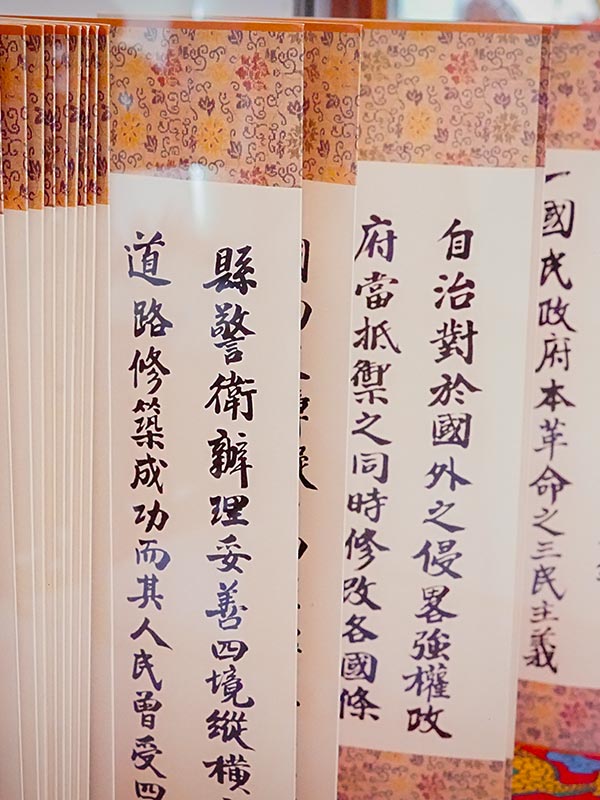 一國民政府本革命之三民主義
自治對於國外之侵畧強權政
府當抵禦之同時修改各國條
縣警衛辦理妥善四境縱橫
道路修築成功而其人民曾受四